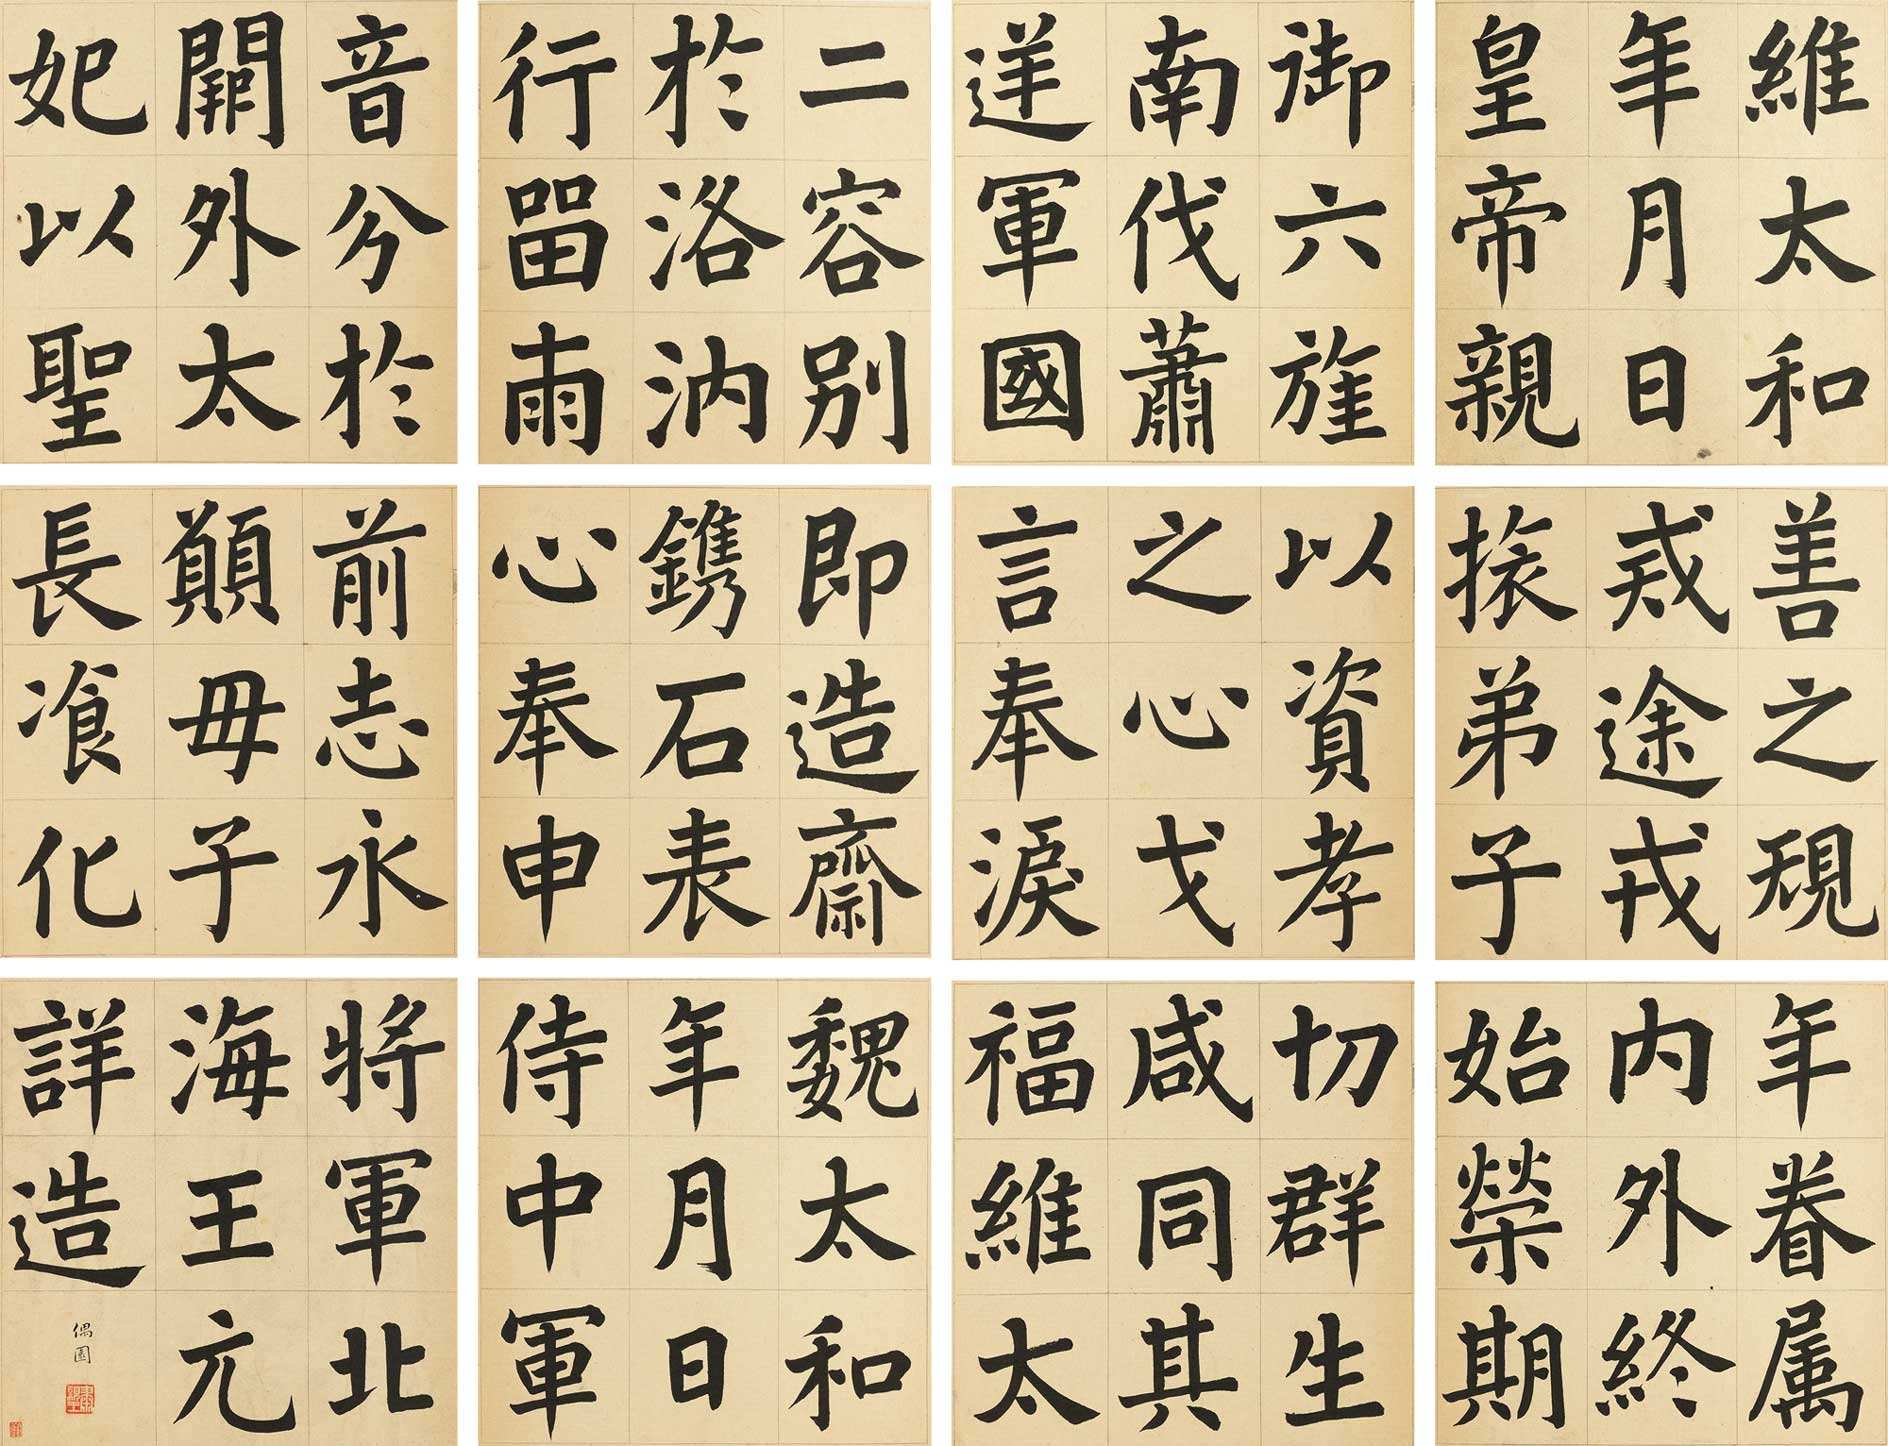 維太和
年月日
皇帝親
御六旌
南伐蕭
逆軍國
二容別
於洛汭
行留兩
音分於
闕外太
妃以聖
善之規
戒途戎
旅弟子
以資孝
之心戈
言奉淚
即造齋
鐫石表
心奉申
前志永
願母子
長飡化
年眷属
内外終
始榮期
切群生
咸同其
福維太
魏太和
年月日
侍中軍
將軍北
海王元
詳造
偶園